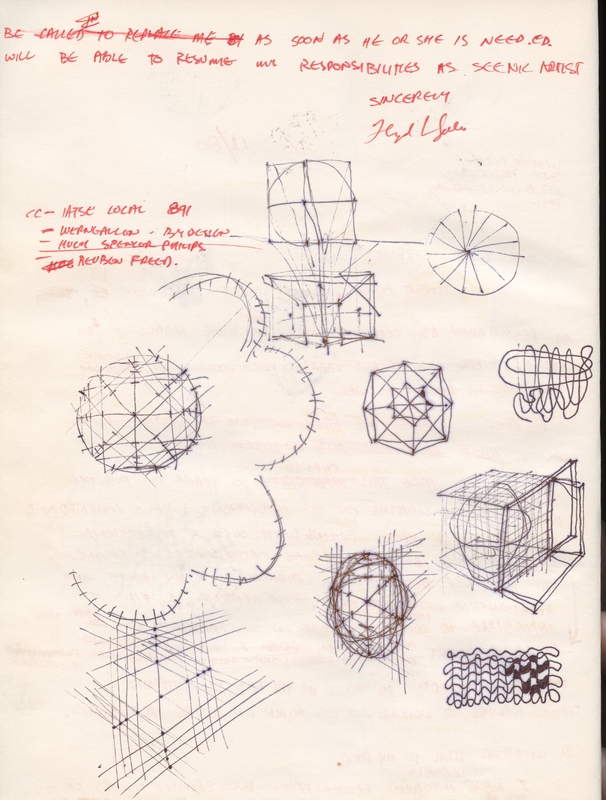 BE CALLED TO REPLACE ME AS SOON AS HE OR SHE IS NEED.ED.
WILL BE ABLE TO RESUME MY RESPONSIBILITIES AS SCENIC ARTIST
SINCERELY
CC - IATSE LOCAL 891
- BY DESIGN
- HUGH SPENCER PHILIPS
REUBEN FREED.